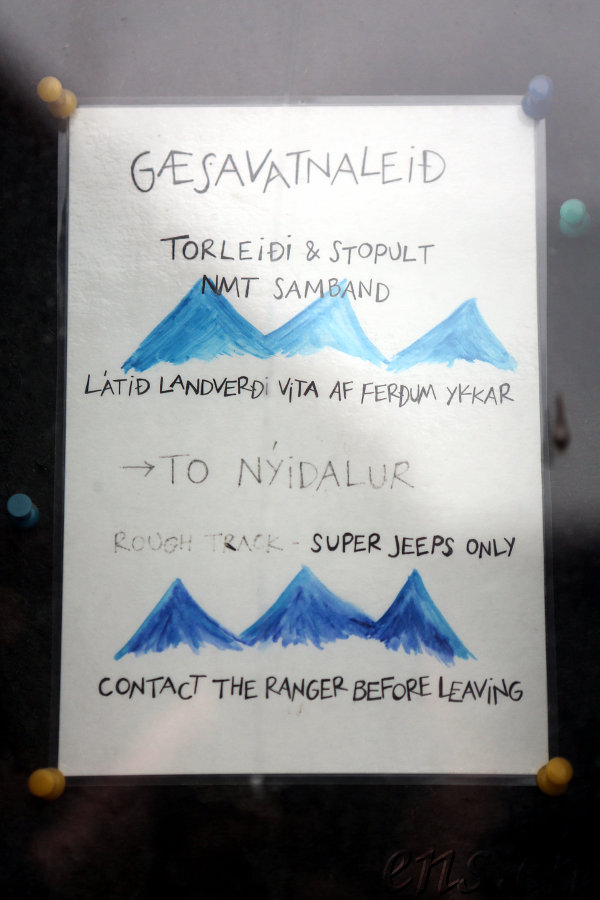 GÆSAVATNALEIÐ
TORLEIÐI & STOPULT
NMT SAMBAND
LÁTIÐ LANDVERÐI VITA AF FERÐUM YKKAR
→TO NÝIDALUR
ROUGH TRACK - SUPER JEEPS ONLY
CONTACT THE RANGER BEFORE LEAVING